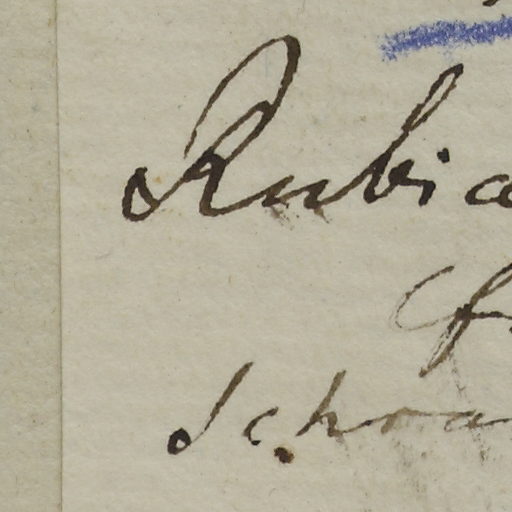 Rubia
Schra